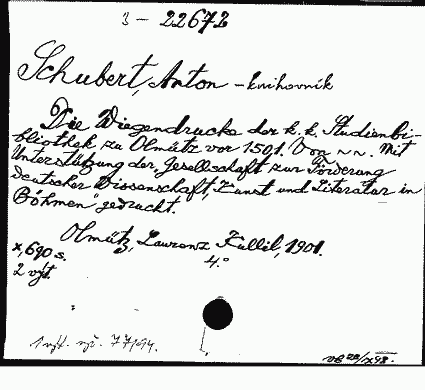 3 - 22672
Schubert, Anton - knihovník
Die Wiegendrucke der k. k. Studienbi-
bliothek zu Olmütz vor 1501. Von ~ ~. Mit
Unterstützung der „Gesellschaft zur Förderung
deutscher Wissenschaft, Kunst und Literatur in
Böhmen" gedruckt.
Olmütz, Laurenz Kullil, 1901.
X, 690 s. 4.°
2 výt.
1 výt. 77/94.